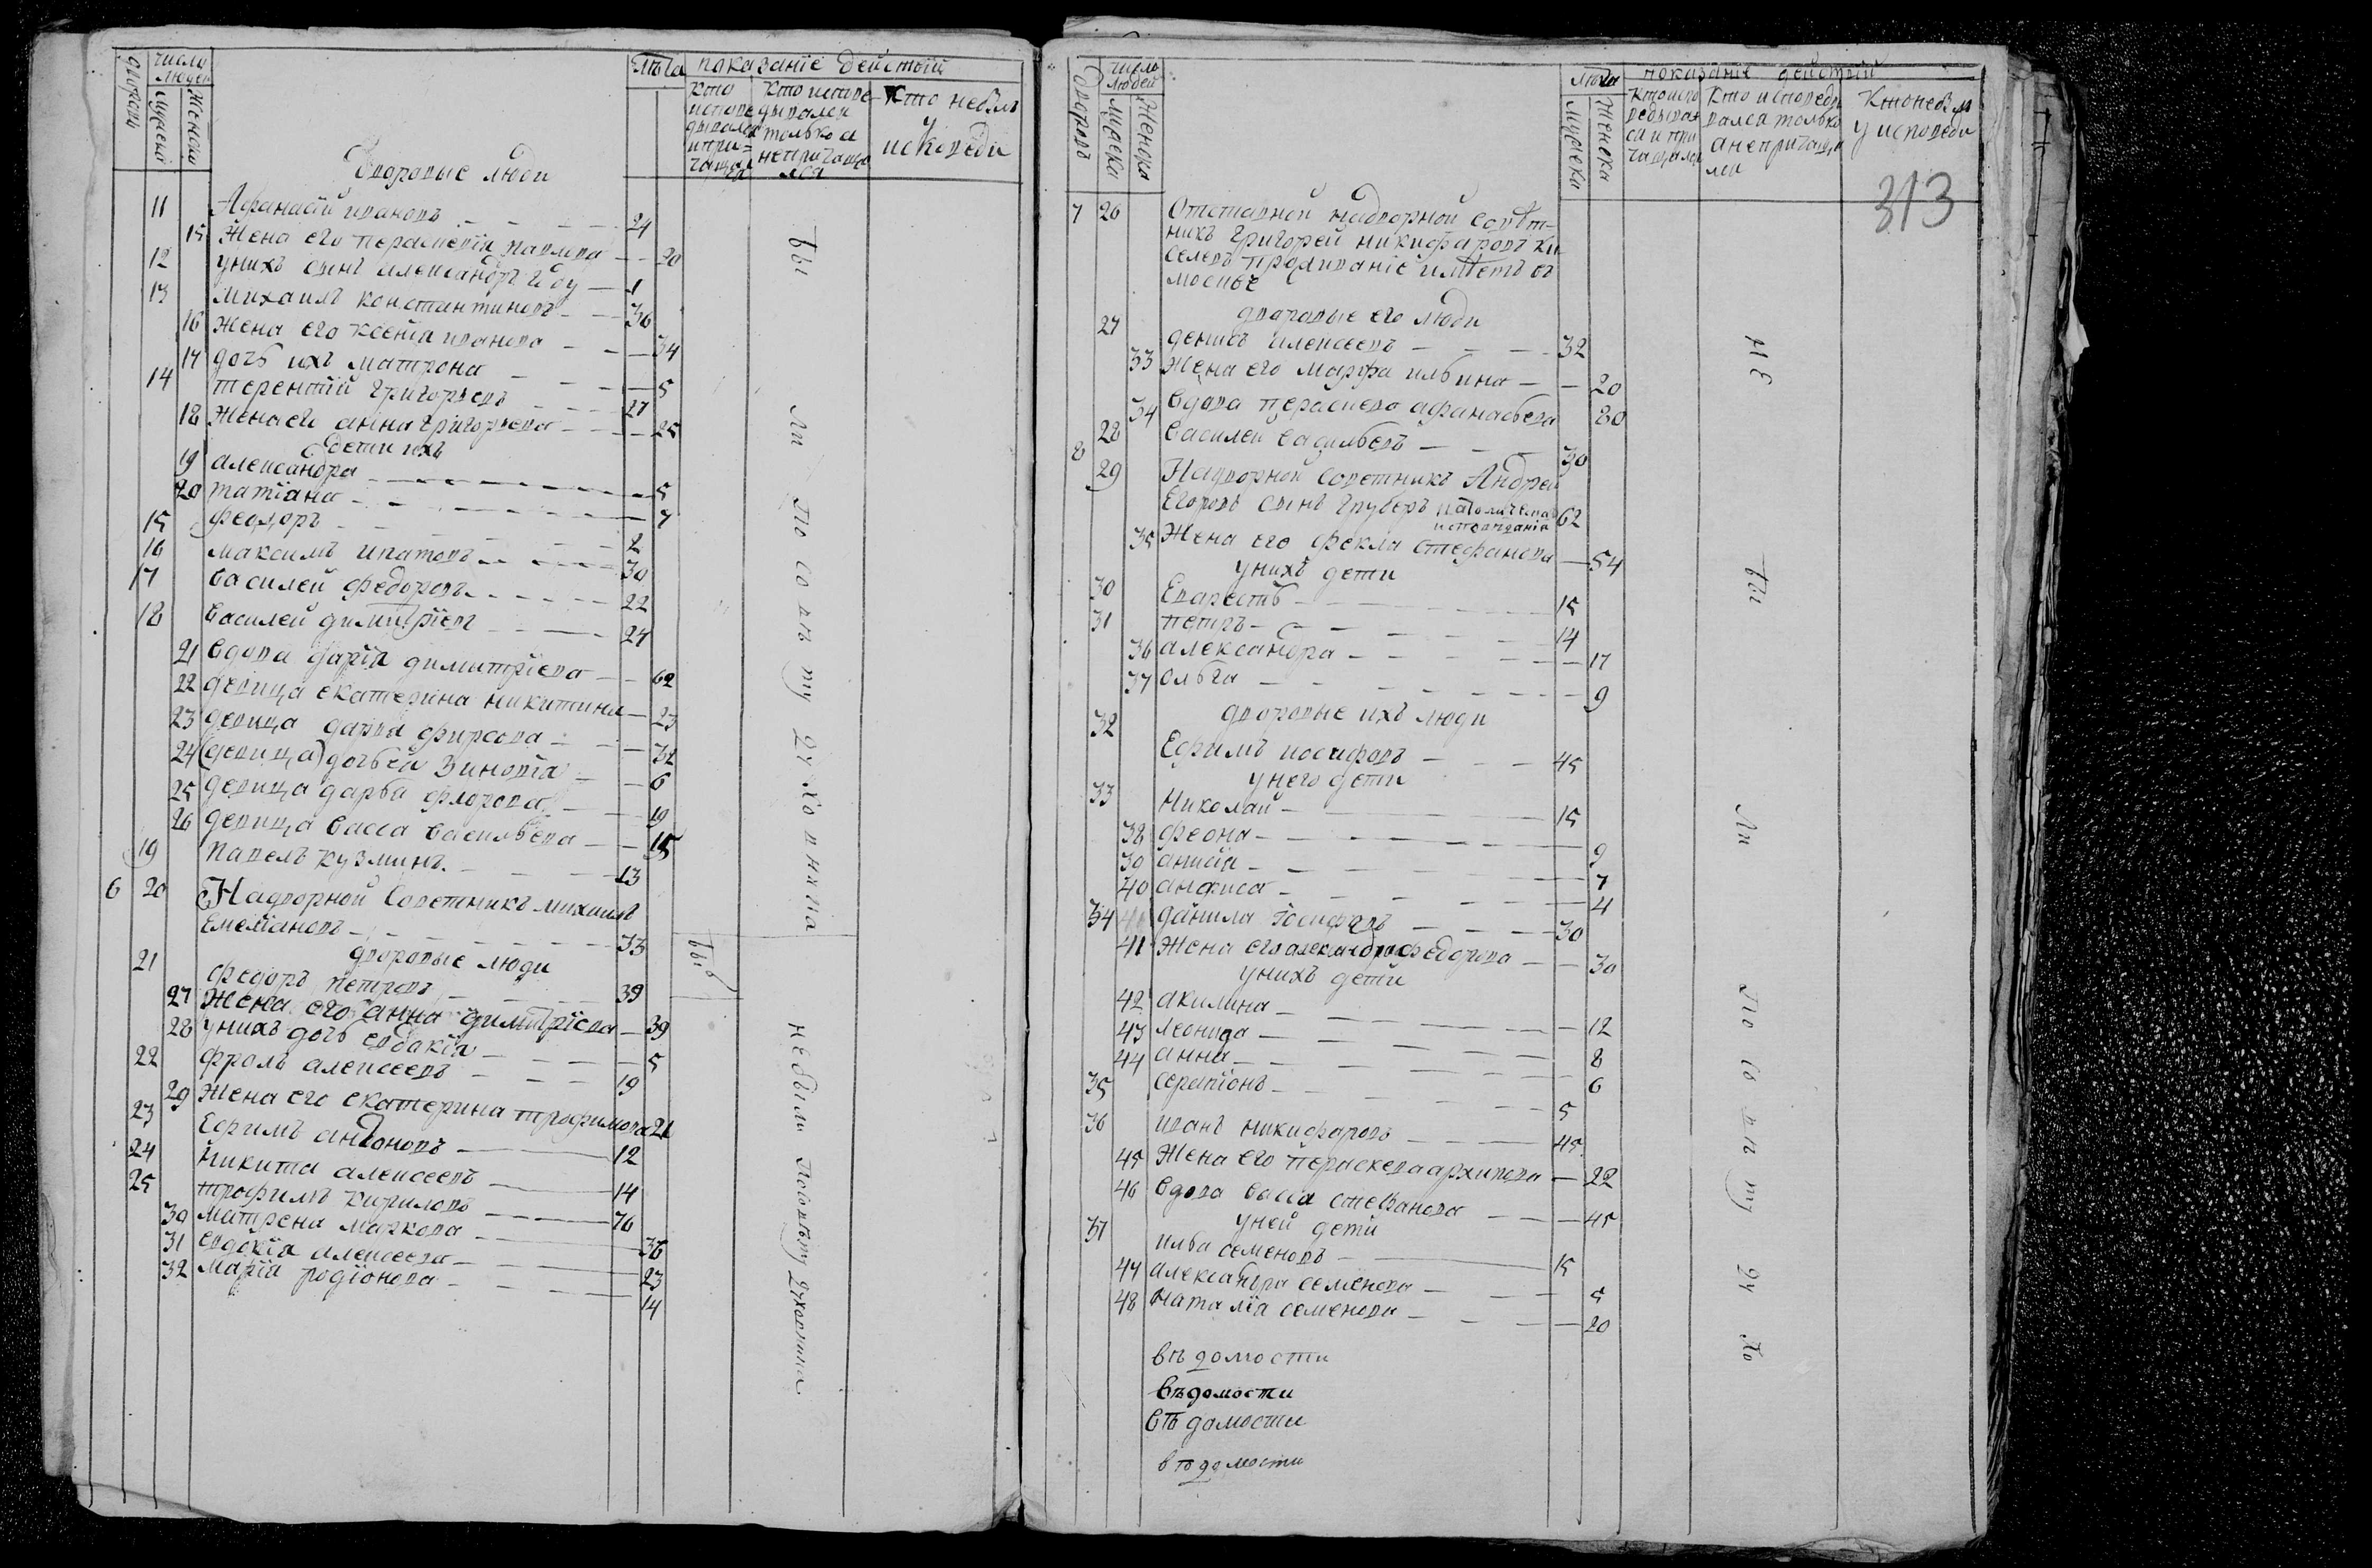 дворовъ
число людей
мужеска
Женска
лѣта
показанїе действїй
кто исповедывался и причащался
кто исповедывался только а непричащался
Кто небылъ у исповеди
Дворовые люди
11 Афанасїй ивановъ 24
15 Жена его параскевїя павлова 20
12 унихъ сынъ александръ 1
13 михаилъ константиновъ 36
16 Жена его ксенїя иванова 34
17 дочь ихъ матрона 5
14 терентїй григорьевъ 27
18 Жена его анна григорьева 25
дети ихъ
19 александра 5
20 татїана 7
15 феодоръ 2
16 максимъ ипатовъ 30
17 василей федоровъ 22
18 василей димитрїевъ 24
21 вдова дарїя димитрїева 62
22 девица екатерина никитина 23
23 девица дарья фирсова 32
24 (девица) дочь ея зиновїя 6
25 девица дарья флорова 19
26 девица васса васильева 15
19 павелъ кузминъ 13
6 20 Надворной Советникъ михаилъ
емелїановъ 33
дворовые люди
21 федоръ петровъ 39
27 Жена его анна димитрїева 39
28 унихъ дочь евдокїя 5
22 фролъ алексеевъ 19
29 Жена его екатерина трофимова 21
23 Ефимъ антоновъ 12
24 никита алексеевъ 14
25 трофимъ кириловъ 76
30 матрена маркова 36
31 евдокїя алексеева 23
32 марїя родїонова 14
бы ли по со вѣ ту дхо вника
бы
небыли посовѣту духовника
дворовъ
число людей
мужеска
Женска
лѣта
мужеска
Женска
показанїе действїй
кто исповедывался и причащался
кто исповедывался только а непричащался
Кто небылъ у исповеди
313
7 26 Отставной надворной совѣт-
никъ григорей никифаровъ ки
селевъ проживанїе имѣетъ въ
москве
дворовые его люди
27 денисъ алексеевъ 32
33 Жена его марфа ильина 20
34 вдова параскева афанасьева 80
28 василей васильевъ 30
8 29 Надворной советникъ Андрей
Егоровъ сынъ груберъ католическаго
исповеданїя 62
35 Жена его фекла стефанова 54
унихъ дети
30 Еварестъ 15
31 петръ 14
36 александра 17
37 ольга 9
дворовые ихъ люди
32 Ефимъ иосифовъ 45
унего дети
33 николай 15
38 феона 9
39 анисїя 7
40 анфиса 4
34 данила Іосифовъ 30
41 Жена его александра федорова 30
унихъ дети
42 акилина 12
43 леонида 8
44 анна 6
35 серапїонъ 5
36 иванъ никифаровъ 45
45 Жена его параскева архипова 22
46 вдова васса стефанова 45
уней дети
37 илья семеновъ 15
47 александра семенова 5
48 наталїя семенова 20
вѣдомости
вѣдомости
вѣдомости
вѣдомости
не бы ли по со вѣ ту